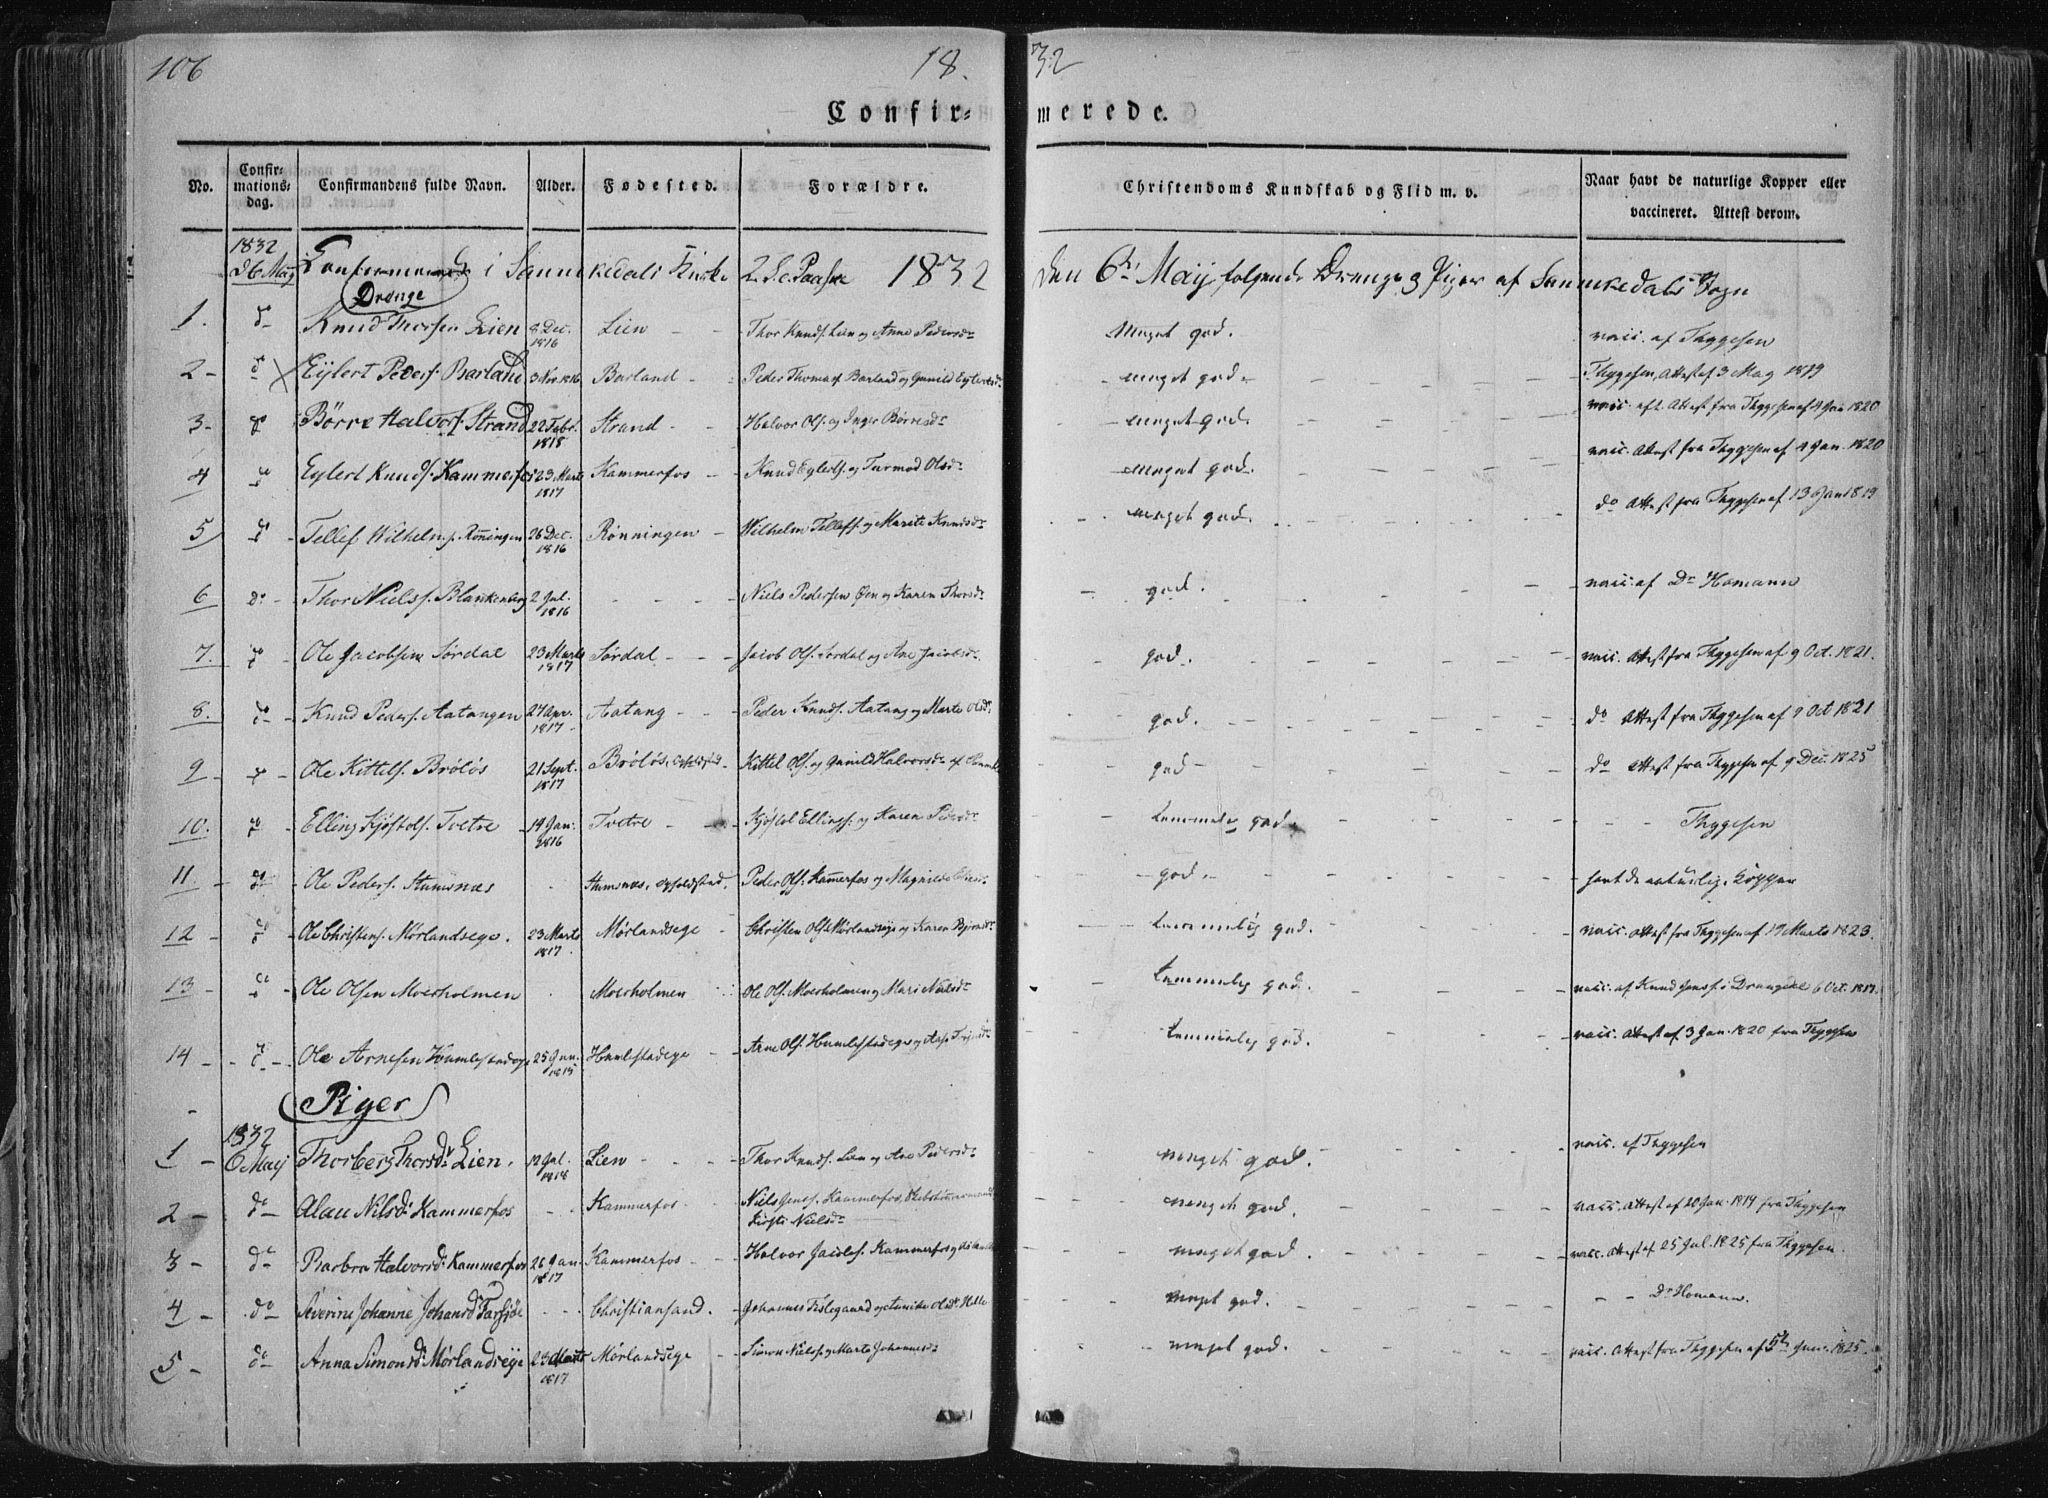 106
18.
32
Confir-
merede.
No.
Confir-
mations-
dag.
Confirmandens fulde Navn.
Alder.
Fødested.
Forældre.
Christendoms Kundskab og Flid m. v.
Naar havt de naturlige Kopper eller
vaccineret. Attest derom.
1832
d 6 May
i Sannikedals Kirke 2 S. e. Paaske 1832
den 6te Maij, folgende Drenge og Piger af Sannikedals Sogn
Drenge
1. do Knud Thorsen Lien 8 Dec. 1816 Lien Thor Knuds. Lien og Anne Pedersdr Meget god. vacc. af Thygesen
2 do Eylert Peders. Barland 3 Nov. 1816 Barland Peder Thomas. Barland og Gunild Eylertsdr meget god Thygesen, Attest af 3 May 1819
3 do Börre Halvors. Strand 22 Febr. 1818 Strand Halvor Ols. og Inger Börresdr meget god. vacc. eft. Attest fra Thygesen af 4 Jan 1820
4 do Eylert Knuds. Kammerfos 23 Marts 1817 Kammerfos Knud Eylerts. og Turmod Olsdr meget god. vacc. Attest fra Thygesen af 4 Jan. 1820
5 do Tellef Wilhelms. Rönningen 26 Dec. 1816 Rønningen Wilhelm Tellefs. og Marite Knudsdr meget god. do Attest fra Thygesen af 13 Jan 1819
6 do Thor Niels. Blankenberg 2 Jul. 1816 Niels Pedersen Øen og Karen Thorsdr god. vacc. af Dr Homann
7. do Ole Jacobsen Sørdal 23 Marts 1817 Sørdal Jacob Ols. Sørdal og Ane Jacobsdr god. vacc. Attest fra Thygesen af 9 Oct. 1821.
8. do Knud Peders. Aatangen 27 Apr. 1817 Aatang Peder Knuds. Aatang og Marte Olsdr god. do Attest fra Thygesen af 9 Oct 1821
9 do Ole Kittels. Bröløs 21 Sept. 1817 Bröløs, Opholdsted Kittel Ols. og Gunild Halvorsdr af god do Attest fra Thygesen af 9 Dec. 1825
10. do Elling Kjøstols. Tvetre 19 Jan. 1816 Tvetre Kjöstol Ellings. og Karen Pedersdr temmelig god. Thygesen
11 do Ole Peders. Stumsnæs Stumsnæs, Opholdsted. Peder Ols. Kammerfos og god. havt de naturlig. Kopper
12 do Ole Christens. Mørlandsege. 23 Marts 1817 Mørlandsege Christen Ols. Mørlandsege og Karen Björnsdr temmelig god. vacc. Attest fra Thygesen af 17 Marts 1823.
13 do Ole Olsen Moerholmen Moerholmen Ole Ols. Moerholmen og Mari Nielsdr temmelig god. vacc. af Knud Jenss. i Drangedal 6 Oct. 1817.
14 do Ole Arnesen Humlestadege 25 Jan. 1815 Humlestadege Arne Ols. Humlestadege og temmelig god. vacc. Attest af 3 Jan. 1820 fra Thygesen
Piger
1832
1 6 Maij Thorberg Thorsdr Lien. 12 Jul. 1818 Lien Thor Knuds. Lien og Ane Pedersdr meget god. vacc. af Thygesen
2 do Alau Nilsdr Kammerfos Kammerfos Niels Jens. Kammerfos, Kirsti Nielsdr meget god. vacc. Attest af 20 Jan. 1819 fra Thygesen
3 do Barbra Halvorsdr Kammerfos 26 Jan. 1817 Kammerfos Halvor Jacobs. Kammerfos og meget god. vacc. Attest af 25 Jul. 1825 fra Thygesen.
4 do Severine Johanne Johansdr Farsjøe Christiansand. Johannes Fislegaard og Olsdr Helle meget god. Dr Homann.
5 do Anna Simonsdr Mørlandsege 23 Marts 1817 Mørlandsege Simon Niels. og Marte Johannesdr meget god. vacc. Attest fra Thygesen af 5te 1825.